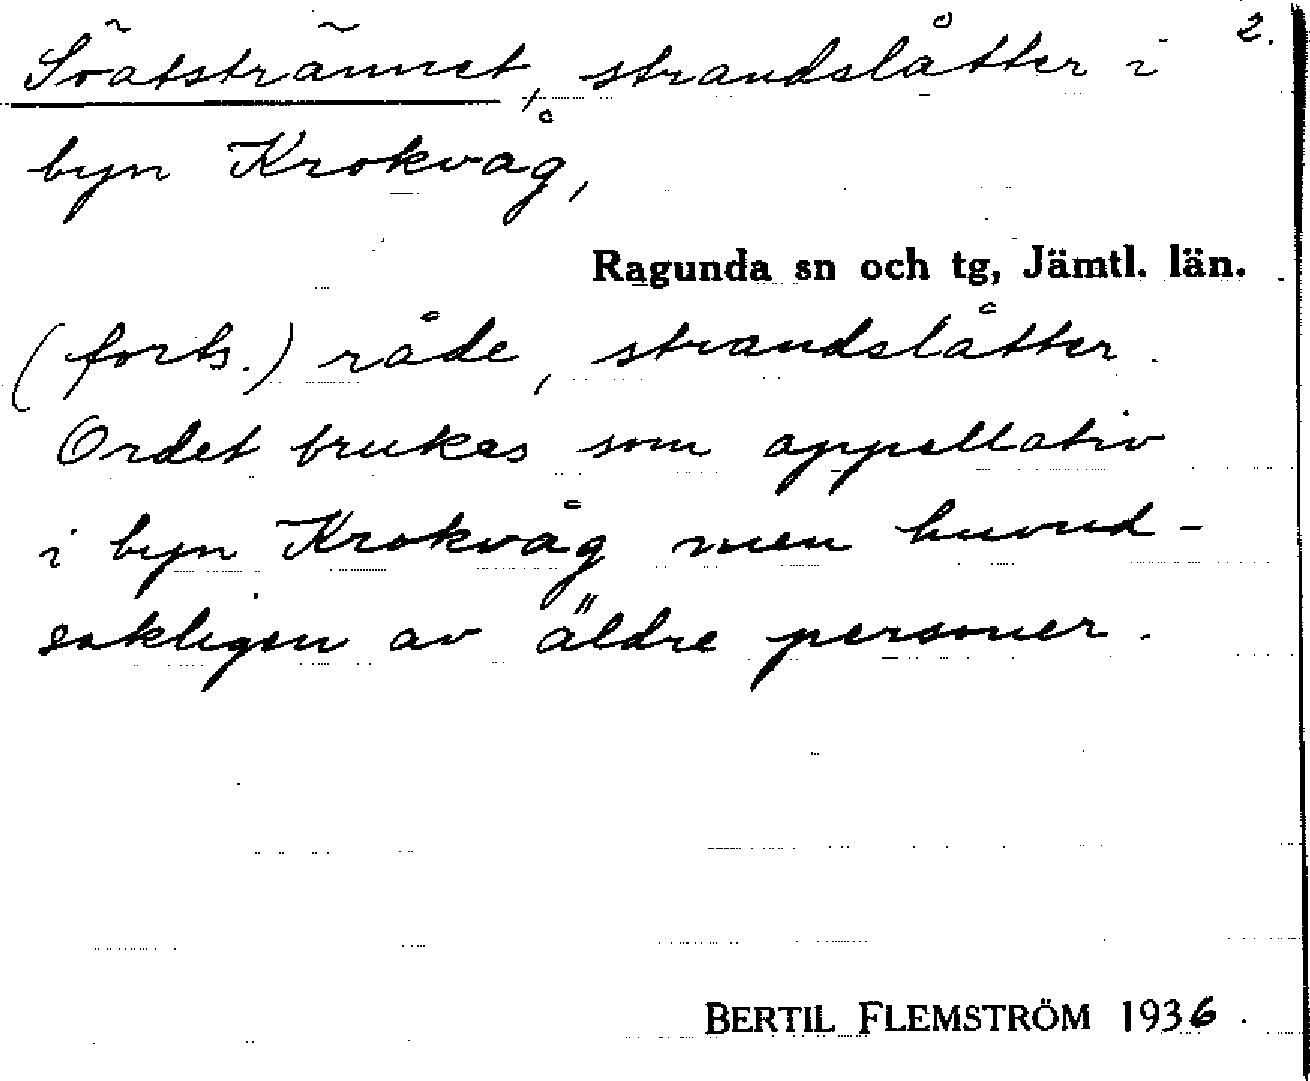 Svätstrännet, strandslåtter i 2.
byn Krokvåg,
Ragunda sn och tg, Jämtl. län.
(forts.) råde, strandslåtter.
Ordet brukas som appellativ
i byn Krokvåg men huvud-
sakligen av äldre personer.
BERTIL FLEMSTRÖM 1936